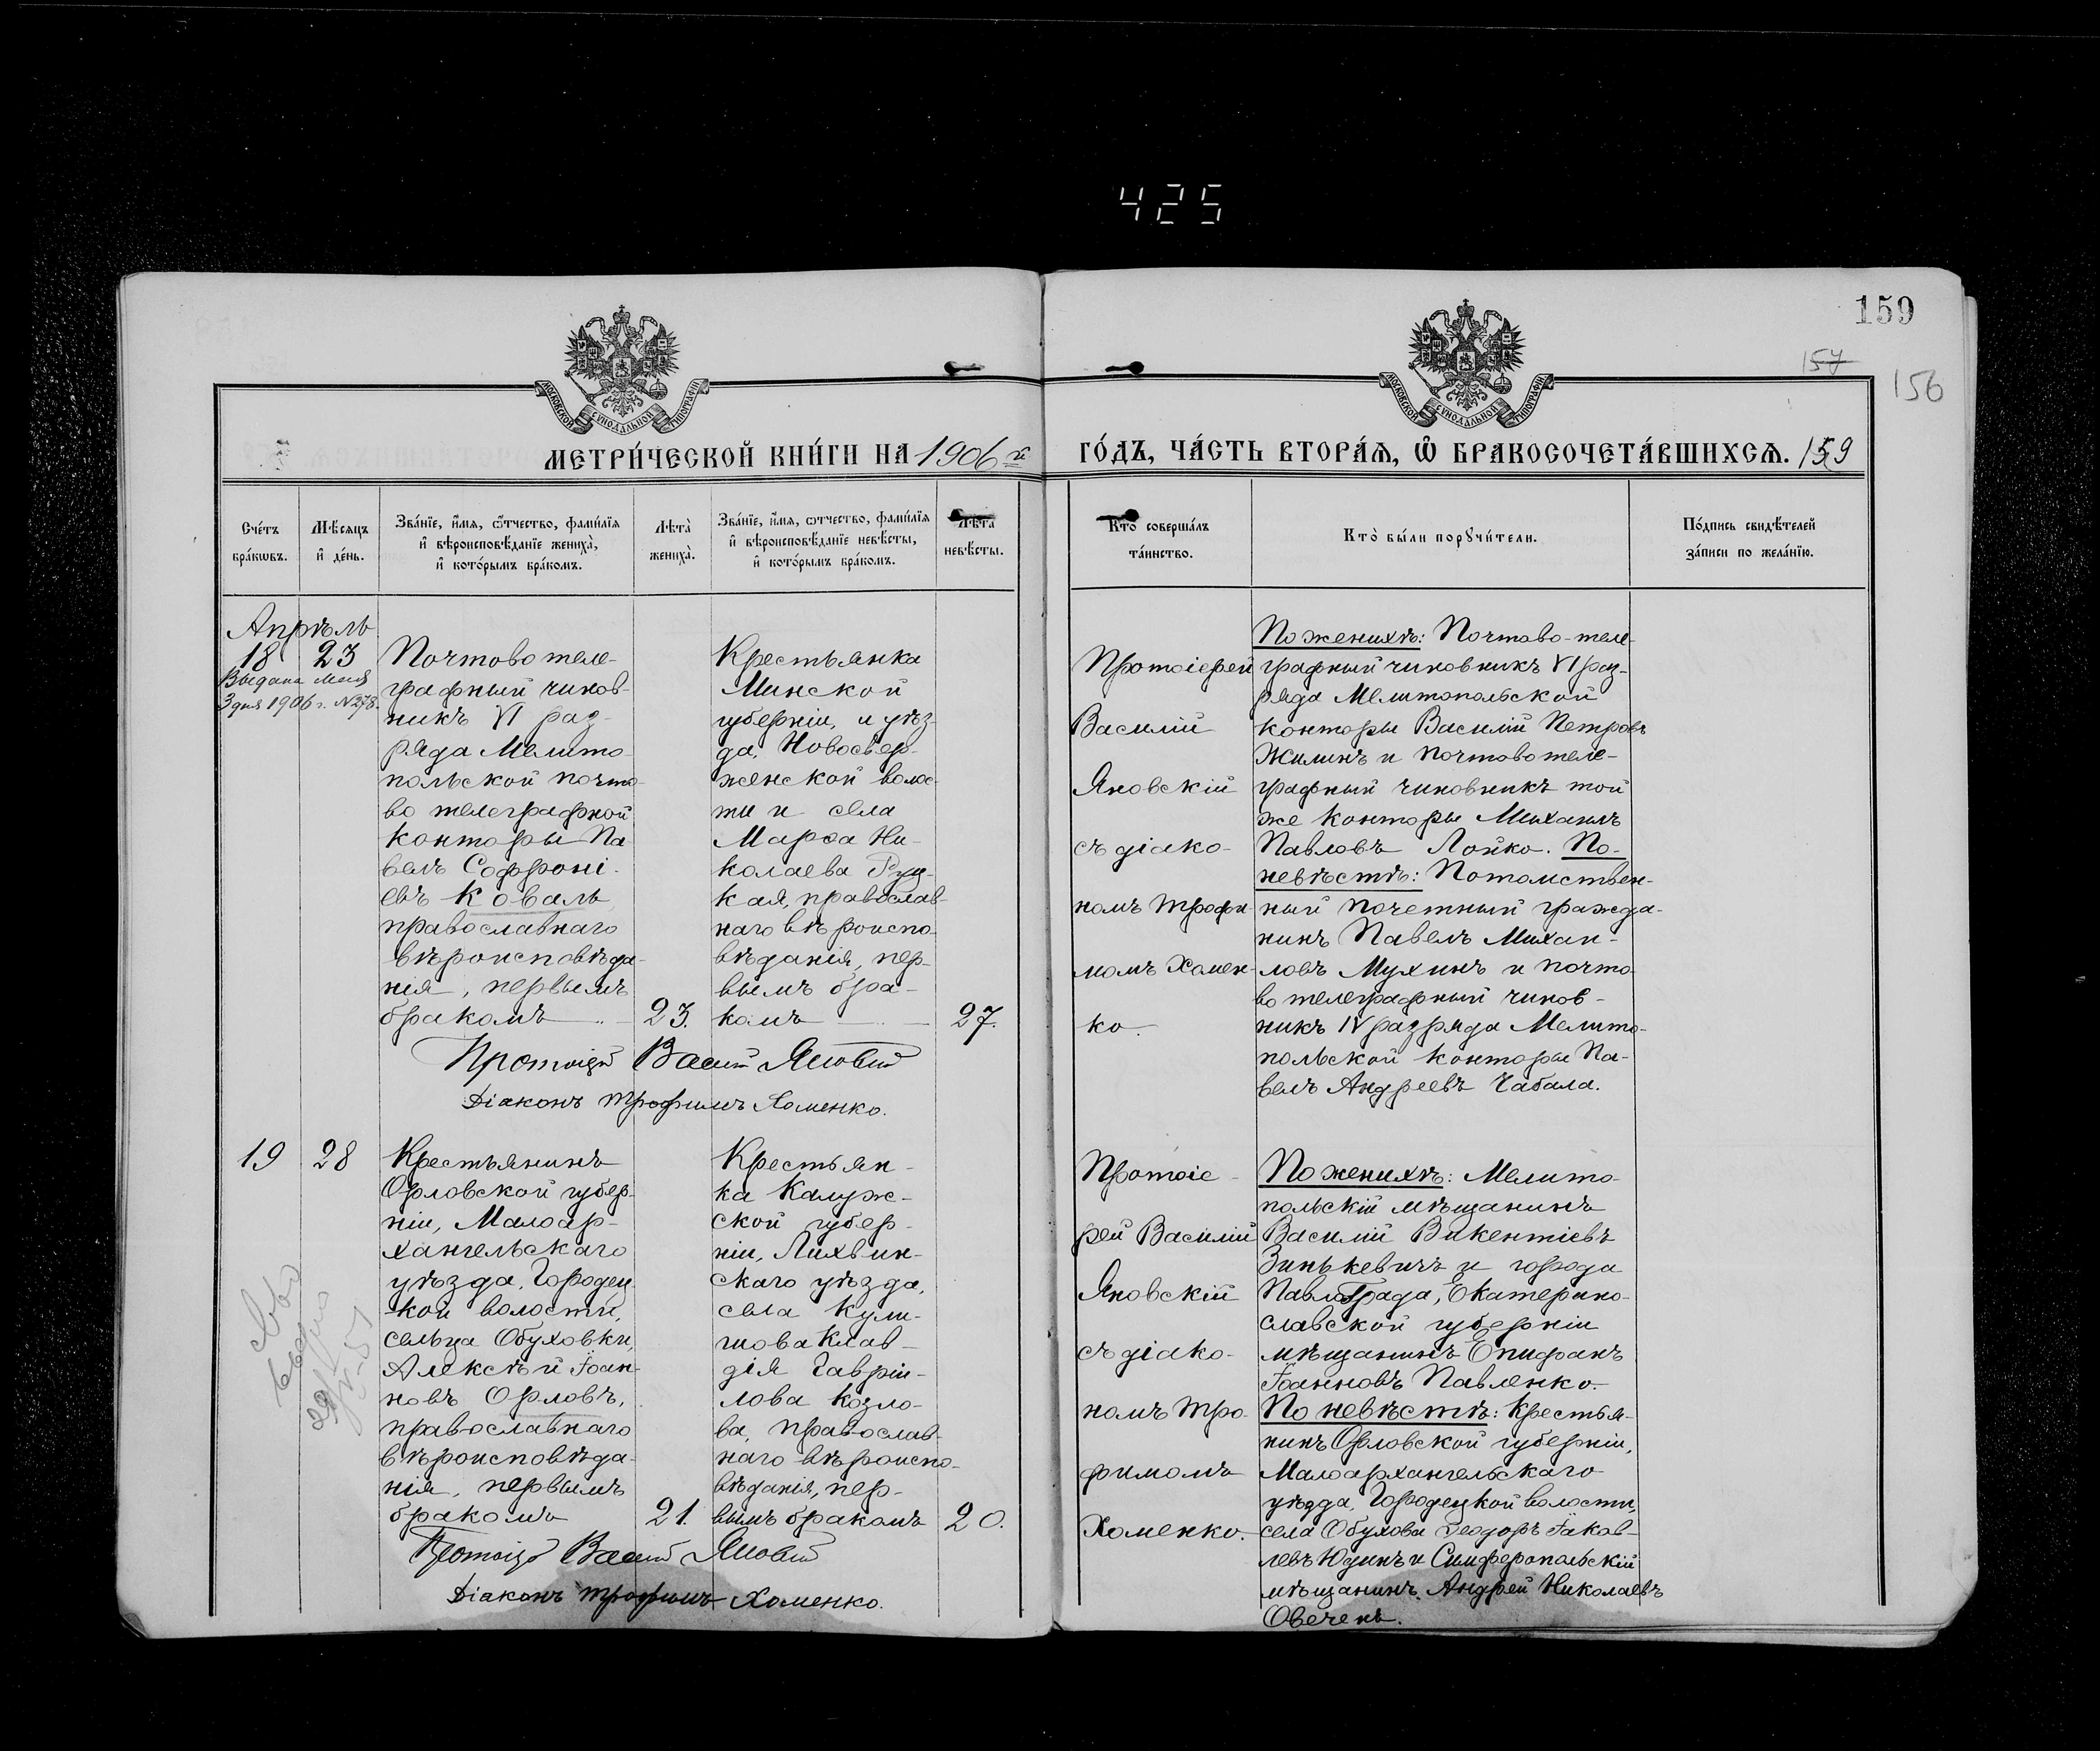 425
159
157
156
МОСКОВСКОЙ СУНОДАЛЬНОЙ ТИПОГРАФІИ
МОСКОВСКОЙ СУНОДАЛЬНОЙ ТИПОГРАФІИ
МЕТРИ́ЧЕСКОЙ КНИ́ГИ НА 1906 й
ГО́ДЪ, ЧА́СТЬ ВТОРА́Я, Ѡ҆ БРАКОСОЧЕТА́ВШИХСѦ. 159
Сче́тъ бра́кѡвъ.
Мѣ́сяцъ и҆ де́нь.
Зва́нїе, и҆́мѧ, ѻ҆́тчество, фами́лїѧ
и҆ вѣроисповѣ́данїе жениха̀,
и҆ кото́рымъ бра́комъ.
Лѣ́та̀ жениха̀.
Зва́нїе, и҆́мѧ, ѻ҆́тчество, фами́лїѧ
и҆ вѣроисповѣ́данїе невѣ́сты,
и҆ кото́рымъ бра́комъ.
Лѣ́та̀ невѣ́сты.
Кто̀ соверша́лъ
та́инство.
Кто̀ бы́ли порꙋчи́тели.
По́дпись свидѣ́телей
за́писи по жела́нїю.
Апрѣль
18
23
Выдана Мая
3 дня 1906 г. №278.
Почтово теле-
графный чинов-
никъ VI раз-
ряда Мелито-
польской почто-
во телеграфной
конторы Па
велъ Софроні-
евъ Коваль
православнаго
вѣроисповѣда-
нія, первымъ
бракомъ
23.
Крестьянка
Минской
губерніи, и уѣз-
да, Новосвер-
женской волос-
ти и села
Марѳа Ни-
колаева Руц-
кая, православ-
наго вѣроиспо-
вѣданія, пер-
вымъ бра-
комъ
27.
Протоіерей
Василій
Яновскій
съ діако-
номъ Трофи
момъ Хомен-
ко
По женихѣ: Почтово-теле-
графный чиновникъ VI раз-
ряда Мелитопольской
конторы Василій Петровъ
Жилинъ и почтово теле-
графный чиновникъ той
же конторы Михаилъ
Павловъ Лойко. По-
невѣстѣ: Потомствен-
ный почетный гражда-
нинъ Павелъ Михаи-
ловъ Мухинъ и почто-
во телеграфный чинов-
никъ IV разряда Мелито-
польской конторы Па-
велъ Андреевъ Чабала.
Протоіерей Василій Яновскій
Діаконъ Трофимъ Хоменко.
19
28
Крестьянинъ
Орловской губер-
ніи, Малоар-
хангельскаго
уѣзда, Городец-
кой волости,
сельца Обуховки,
Алексѣй Іоан-
новъ Орловъ,
православнаго
вѣроисповѣда-
нія, первымъ
бракомъ
21.
Крестьян-
ка Калуж-
ской губер-
ніи, Лихвин-
скаго уѣзда,
села Кули-
шова Клав-
дія Гавріи-
лова Козло-
ва, православ-
наго вѣроиспо-
вѣданія, пер-
вымъ бракомъ
20.
Протоіе-
рей Василій
Яновскій
съ діако-
номъ Тро-
фимомъ
Хоменко.
По женихѣ: Мелито-
польскій мѣщанинъ
Василій Викентіевъ
Зинькевичъ и города
Павлограда, Екатерино-
славской губерніи
мѣщанинъ Епифанъ
Іоанновъ Павленко.
По невѣстѣ: Крестья-
нинъ Орловской губерніи,
Малоархангельскаго
уѣзда, Городецкой волости,
села Обухова Ѳеодоръ Іаков-
левъ Юдинъ и Симферопольскій
мѣщанинъ Андрей Николаевъ
Овеченъ.
Протоіерей Василій Яновскій
Діаконъ Трофимъ Хоменко.